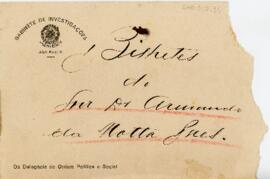 GABINETE DE INVESTIGAÇÕES
SÃO PAULO
Bilhetes
do
Snr Dr Armando
da Motta Paes.
Da Delegacia de Ordem Politica e Social